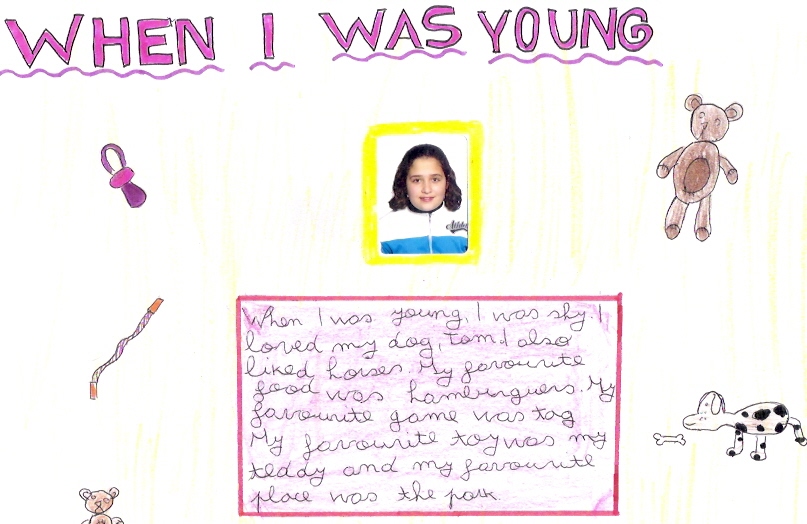 WHEN I WAS YOUNG
When I was young, I was shy. I
loved my dog, Tom. I also
liked horses. My favourite
food was hamburguers. My
favourite game was tag
My favourite toy was my
teddy and my favourite
place was the park.